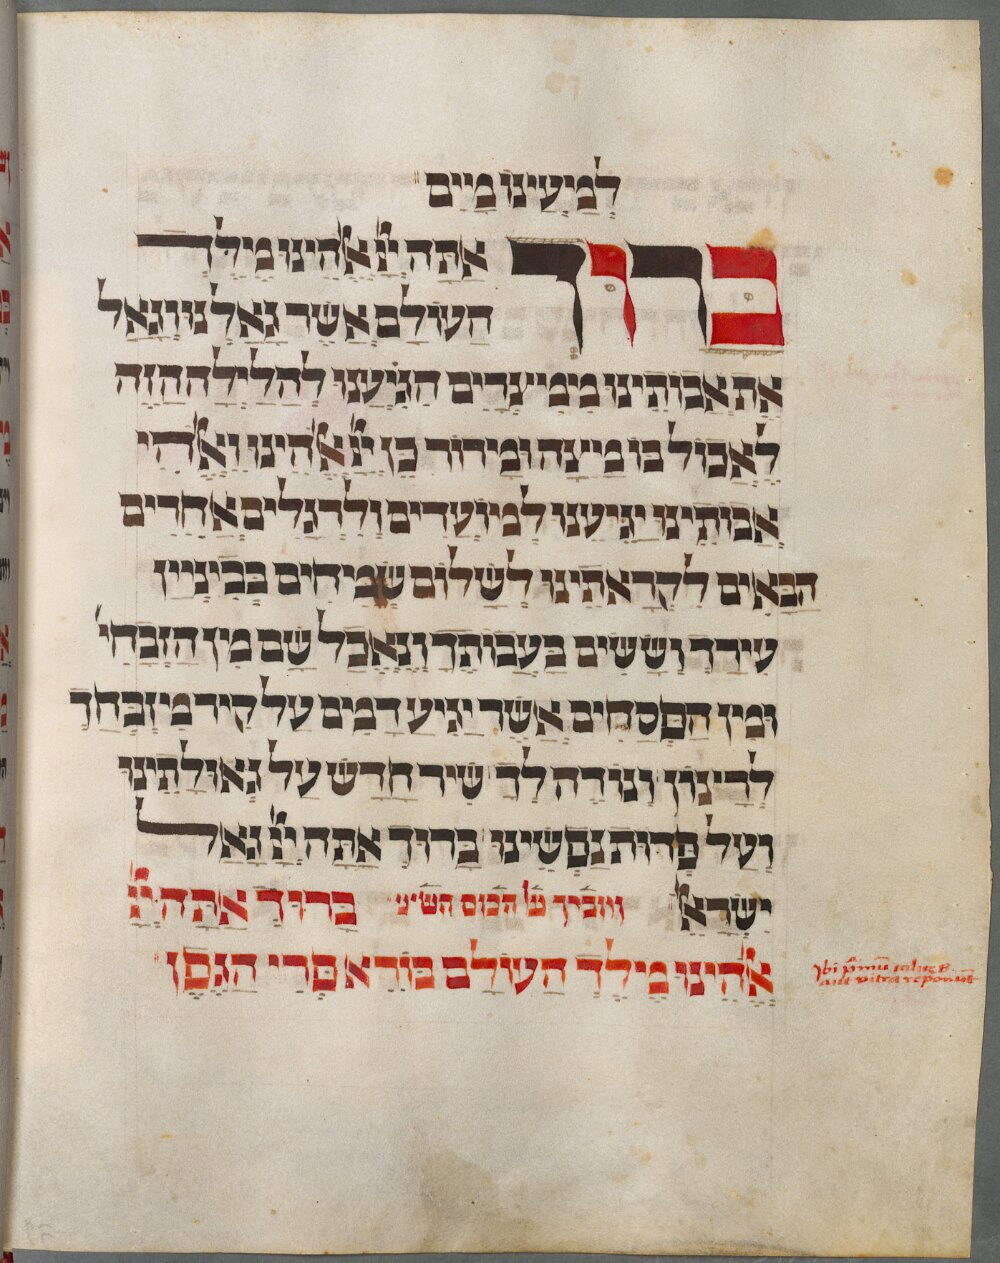 למיעינו מים
ברוך אתה ייי אלהינו מילך
העולם אשר גאלנו וגאל
את אבותינו ממיצרים הגיענו להלילה הזה
לאכול בו מיצה ומירור כן ייי אלהינו ואלהי
אבותינו יגיענו למועדים ולרגלים אחרים
הבאים לקראתינו לשלום שמיחים בבינייין
עירך וששים בעבותך ונאכל שם מן הזבחי'
ומין הפסחים אשר יגיע דמים על קיר מיזבחך
לריצון ונודה לך שיר חדש על גאולתינו
ועל פדות נפשינו ברוך אתה ייי גאל
ישראל על הכוס השיני ברוך אתה ייי
אלהינו מילך העולם בורא פרי הגפן